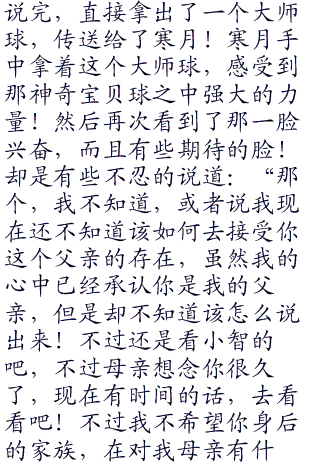 说完，直接拿出了一个大师
球，传送给了寒月！寒月手
中拿着这个大师球，感受到
那神奇宝贝球之中强大的力
量！然后再次看到了那一脸
兴奋，而且有些期待的脸！
却是有些不忍的说道：“那
个，我不知道，或者说我现
在还不知道该如何去接受你
这个父亲的存在，虽然我的
心中已经承认你是我的父
亲，但是却不知道该怎么说
出来！不过还是看小智的
吧，不过母亲想念你很久
了，现在有时间的话，去看
看吧！不过我不希望你身后
的家族，在对我母亲有什